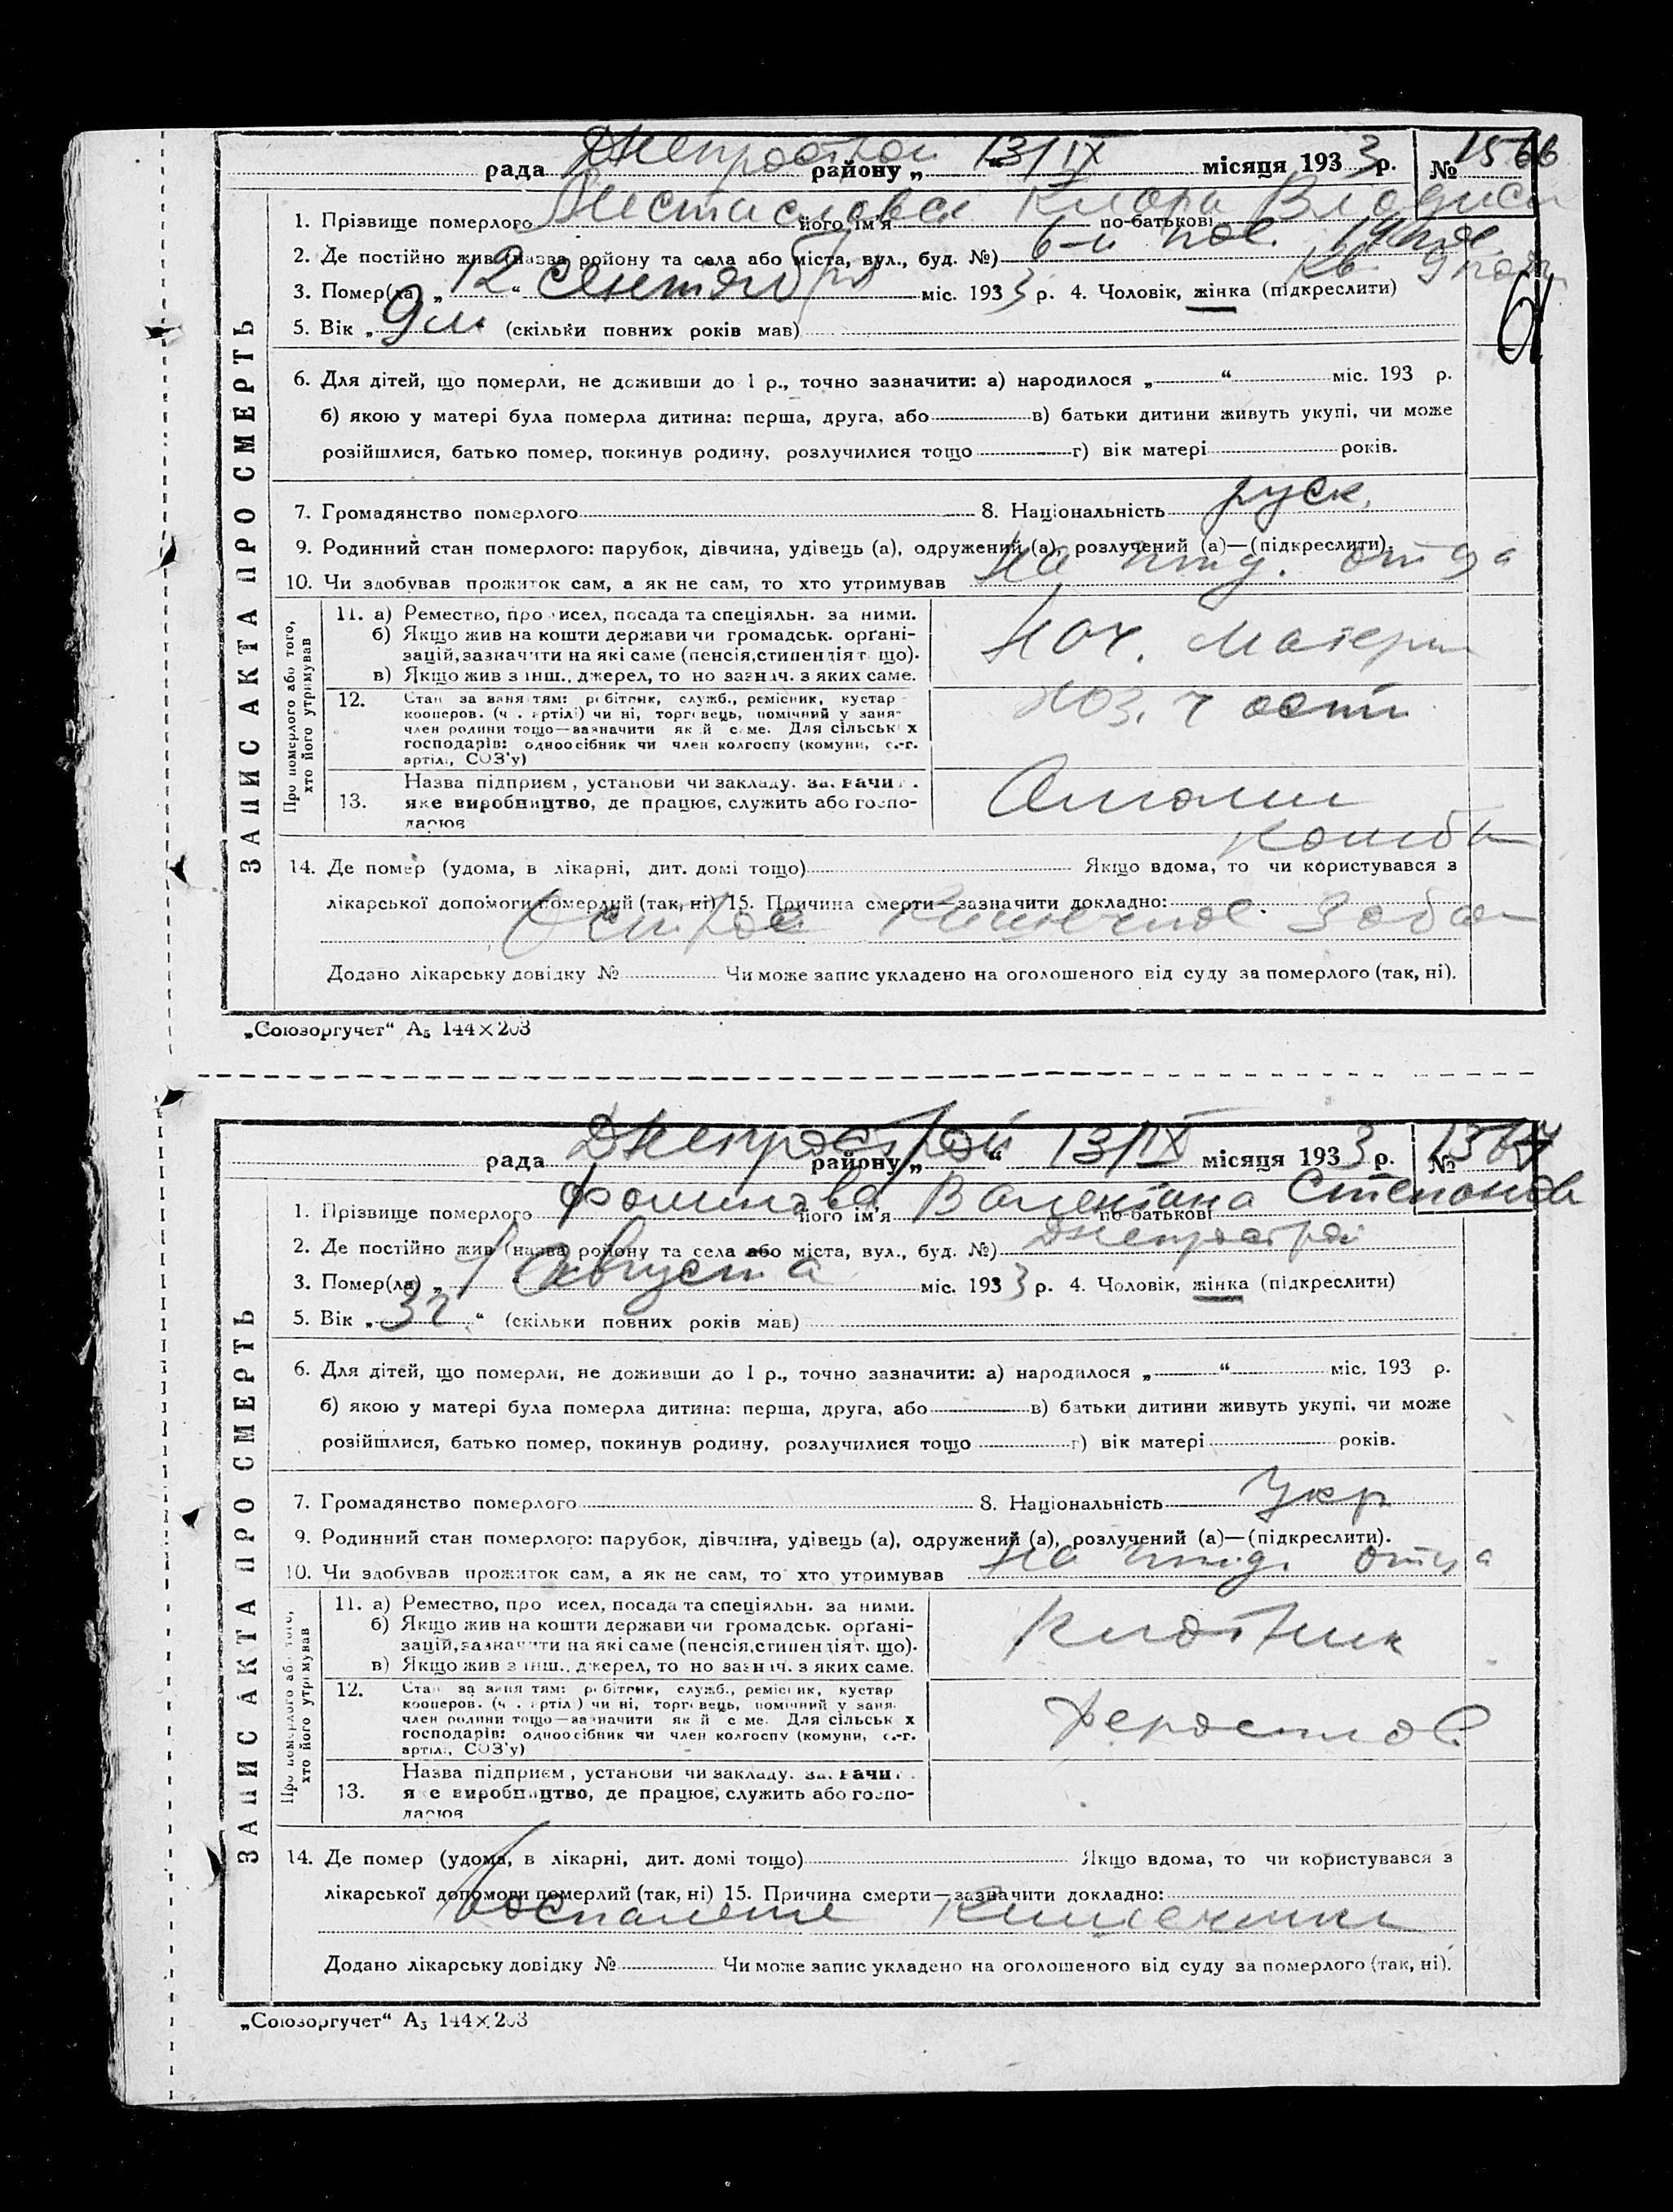 Днепрострой 13/IX
рада районy „ “ місяця 1933 р. № 1566
1. Прізвище померлого його ім'я Клара по-батькові Владисл
2. Де постійно жив (назва району та села або міста, вул., буд. №) 6-й пос.
кв. 9
3. Помер(ла) „ 12 “ сентября міс. 1933 р. 4. Чоловік, жінка (підкреслити)
5. Вік „ 9 м. (скільки повних років мав)
6. Для дітей, що померли, не доживши до 1 р., точно зазначити: а) народилося „ “ міс. 193 р.
б) якою у матері була померла дитина: перша, друга, або в) батьки дитини живуть укупі, чи може
розійшлися, батько помер, покинув родину, розлучилися тощо г) вік матері років.
7. Громадянство померлого 8. Національність руск.
9. Родинний стан померлого: парубок, дівчина, удівець (а), одружений (а), розлучений (а)—(підкреслити).
10. Чи здобував прожиток сам, а як не сам, то хто утримував На ижд. отца
ЗАПИС АКТА ПРО СМЕРТЬ
Про померлого або того, хто його утримував
11. а) Ремество, про исел, посада та спеціяльн. за ними.
б) Якщо жив на кошти держави чи громадськ. орґані-
зацій, зазначити на які саме (пенсія, стипендія т. що).
в) Якщо жив з інш., джерел, то но зазнач. з яких саме.
Нач.
12. Стан за заняттям: робітник, служб., ремісник, кустар
кооперов. (ч . артілі) чи ні, торговець, помічний у заня-
член родини тощо—зазначити як й саме. Для сільськ х
господарів: одноосібник чи член колгоспу (комуни, с.-г.
артілі, СОЗ'у)
части
13. Назва підприєм , установи чи закладу. за. начи .
яке виробництво, де працює, служить або госпо-
дарює
14. Де помер (удома, в лікарні, дит. домі тощо) Якщо вдома, то чи користувався з
лікарської допомоги померлий (так, ні) 15. Причина смерти—зазначити докладно:
Острое кишечное забол
Додано лікарську довідку № Чи може запис укладено на оголошеного від суду за померлого (так, ні).
„Союзоргучет“ А₅ 144×203
Днепрострой 13/IX
рада району „ “ місяця 1933 р. №
1. Прізвище померлого його ім'я Валентина по-батькові Степанов
2. Де постійно жив (назва району та села або міста, вул., буд. №) Днепрострой
3. Помер(ла) „ 1 “ Августа міс. 1933 р. 4. Чоловік, жінка (підкреслити)
5. Вік „ 3 г. “ (скільки повних років мав)
6. Для дітей, що померли, не доживши до 1 р., точно зазначити: а) народилося „ “ міс. 193 р.
б) якою у матері була померла дитина: перша, друга, або в) батьки дитини живуть укупі, чи може
розійшлися, батько помер, покинув родину, розлучилися тощо г) вік матері років.
7. Громадянство померлого 8. Національність Укр
9. Родинний стан померлого: парубок, дівчина, удівець (а), одружений (а), розлучений (а)—(підкреслити).
10. Чи здобував прожиток сам, а як не сам, то хто утримував На ижд. отца
ЗАПИС АКТА ПРО СМЕРТЬ
Про померлого або того, хто його утримував
11. а) Ремество, про исел, посада та спеціяльн. за ними.
б) Якщо жив на кошти держави чи громадськ. орґані-
зацій, зазначити на які саме (пенсія, стипендія т. що).
в) Якщо жив з інш., джерел, то но зазнач. з яких саме.
12. Стан за заняттям: робітник, служб., ремісник, кустар
кооперов. (ч . артіл ) чи ні, торговець, помічний у заня-
член родини тощо—зазначити як й саме. Для сільськ х
господарів: одноосібник чи член колгоспу (комуни, с.-г.
артілі, СОЗ'у)
13. Назва підприєм , установи чи закладу. за. начи .
яке виробництво, де працює, служить або госпо-
дарює
14. Де помер (удома, в лікарні, дит. домі тощо) Якщо вдома, то чи користувався з
лікарської допомоги померлий (так, ні) 15. Причина смерти—зазначити докладно:
Воспаление Кишечника
Додано лікарську довідку № Чи може запис укладено на оголошеного від суду за померлого (так, ні).
„Союзоргучет“ А₅ 144×203